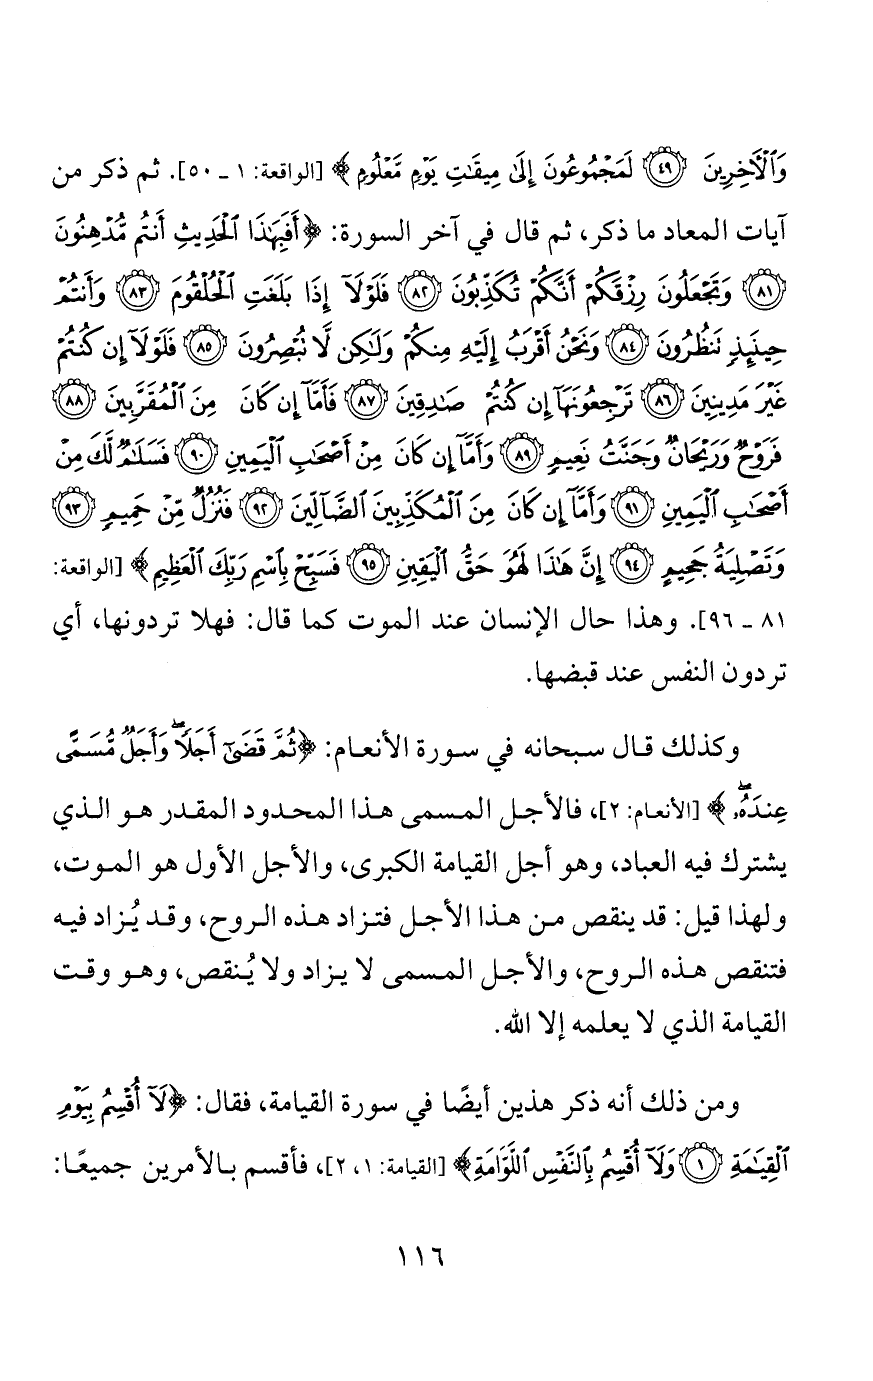 وَٱلْأَخِرِينَ ﴿٤٩﴾ لَمَجْمُوعُونَ إِلَىٰ مِيقَٰتِ يَوْمٍ مَّعْلُومٍ﴾ [الواقعة: ١ ـ ٥٠]. ثم ذكر من
آيات المعاد ما ذكر، ثم قال في آخر السورة: ﴿أَفَبِهَٰذَا ٱلْحَدِيثِ أَنتُم مُّدْهِنُونَ
﴿٨١﴾ وَتَجْعَلُونَ رِزْقَكُمْ أَنَّكُمْ تُكَذِّبُونَ ﴿٨٢﴾ فَلَوْلَآ إِذَا بَلَغَتِ ٱلْحُلْقُومَ ﴿٨٣﴾ وَأَنتُمْ
حِينَئِذٍ تَنظُرُونَ ﴿٨٤﴾ وَنَحْنُ أَقْرَبُ إِلَيْهِ مِنكُمْ وَلَٰكِن لَّا تُبْصِرُونَ ﴿٨٥﴾ فَلَوْلَآ إِن كُنتُمْ
غَيْرَ مَدِينِينَ ﴿٨٦﴾ تَرْجِعُونَهَآ إِن كُنتُمْ صَٰدِقِينَ ﴿٨٧﴾ فَأَمَّآ إِن كَانَ مِنَ ٱلْمُقَرَّبِينَ ﴿٨٨﴾
فَرَوْحٌ وَرَيْحَانٌ وَجَنَّتُ نَعِيمٍ ﴿٨٩﴾ وَأَمَّآ إِن كَانَ مِنْ أَصْحَٰبِ ٱلْيَمِينِ ﴿٩٠﴾ فَسَلَٰمٌ لَّكَ مِنْ
أَصْحَٰبِ ٱلْيَمِينِ ﴿٩١﴾ وَأَمَّآ إِن كَانَ مِنَ ٱلْمُكَذِّبِينَ ٱلضَّآلِّينَ ﴿٩٢﴾ فَنُزُلٌ مِّنْ حَمِيمٍ ﴿٩٣﴾
وَتَصْلِيَةُ جَحِيمٍ ﴿٩٤﴾ إِنَّ هَٰذَا لَهُوَ حَقُّ ٱلْيَقِينِ ﴿٩٥﴾ فَسَبِّحْ بِٱسْمِ رَبِّكَ ٱلْعَظِيمِ﴾ [الواقعة:
٨١ ـ ٩٦]. وهذا حال الإنسان عند الموت كما قال: فهلا تردونها، أي
تردون النفس عند قبضها.
وكذلك قال سبحانه في سورة الأنعام: ﴿ثُمَّ قَضَىٰٓ أَجَلًا ۖ وَأَجَلٌ مُّسَمًّى
عِندَهُۥ ۖ﴾ [الأنعام: ٢]، فالأجل المسمى هذا المحدود المقدر هو الذي
يشترك فيه العباد، وهو أجل القيامة الكبرى، والأجل الأول هو الموت،
ولهذا قيل: قد ينقص من هذا الأجل فتزاد هذه الروح، وقد يُزاد فيه
فتنقص هذه الروح، والأجل المسمى لا يزاد ولا يُنقص، وهو وقت
القيامة الذي لا يعلمه إلا الله.
ومن ذلك أنه ذكر هذين أيضًا في سورة القيامة، فقال: ﴿لَآ أُقْسِمُ بِيَوْمِ
ٱلْقِيَٰمَةِ ﴿١﴾ وَلَآ أُقْسِمُ بِٱلنَّفْسِ ٱللَّوَّامَةِ﴾ [القيامة: ١، ٢]، فأقسم بالأمرين جميعًا:
١١٦